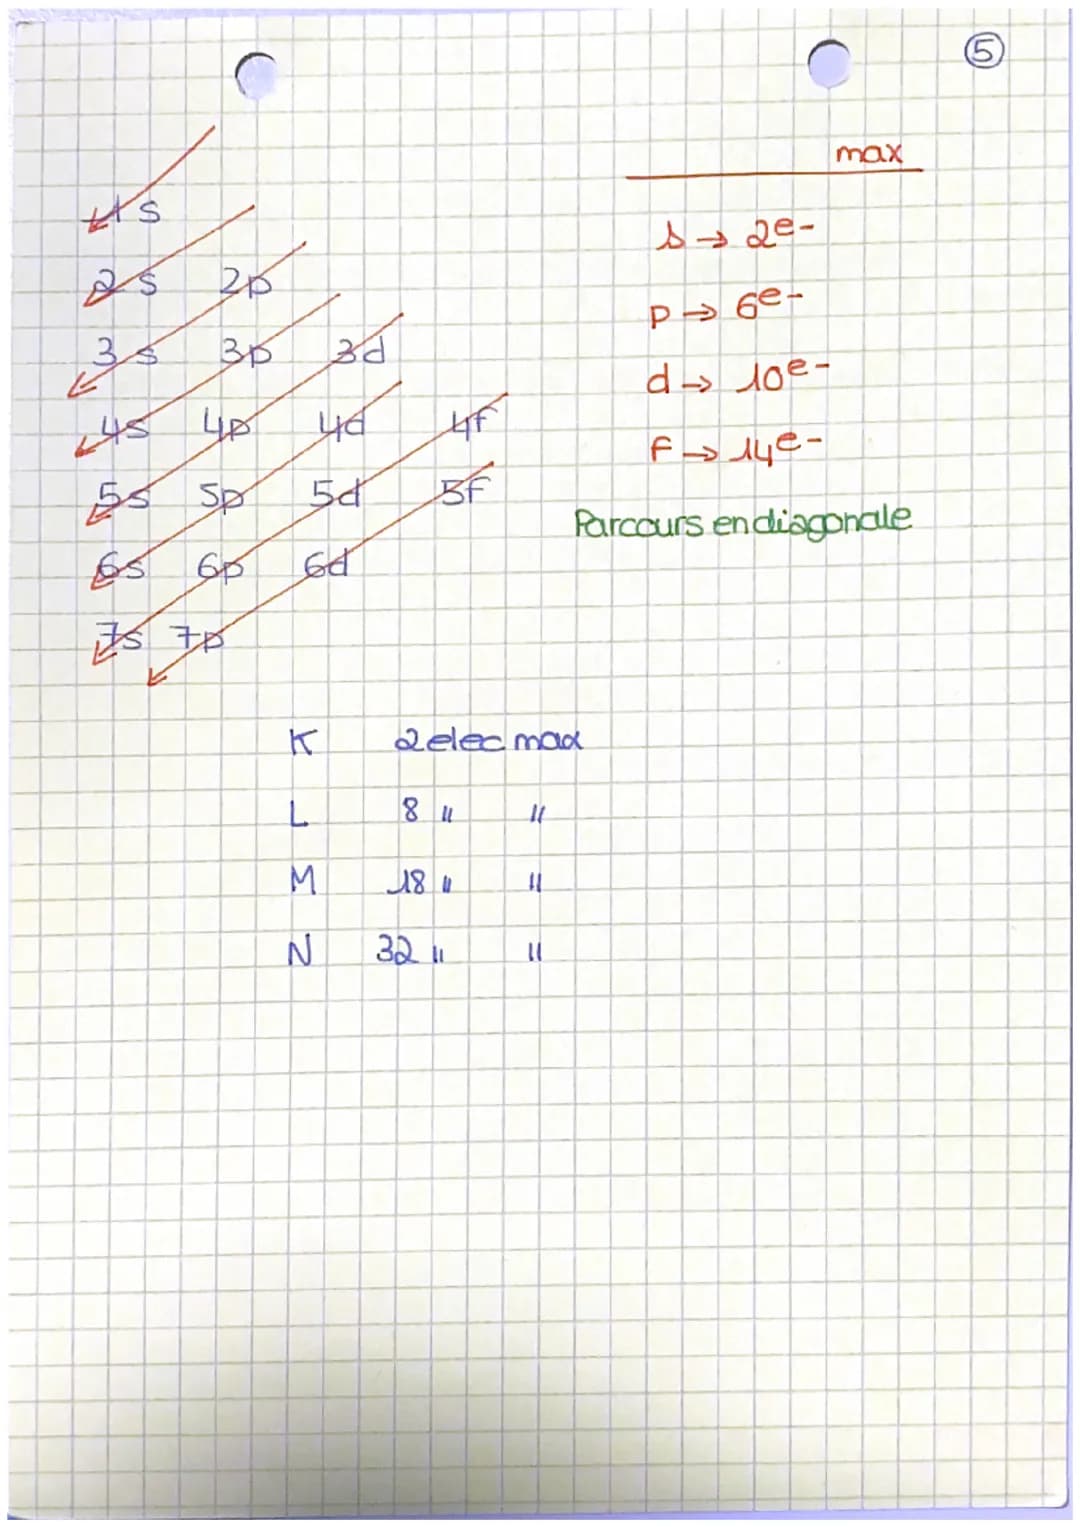 ⑤
1s
2s 2p
3s 3p 3d
4s 4p 4d 4f
5s 5p 5d 5f
6s 6p 6d
7s 7p
max
s → 2e-
p → 6e-
d → 10e-
f → 14e-
Parcours en diagonale
K 2 elec max
L 8 " "
M 18 " "
N 32 " "